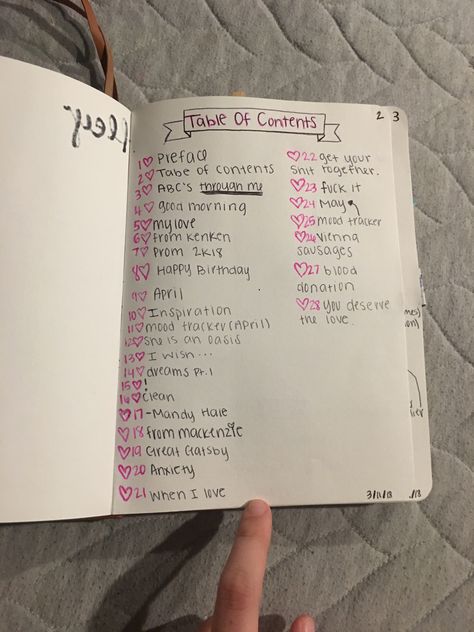 Table Of Contents
2 3
1♡ Preface
2♡ Table of contents
3♡ ABC's through me
4♡ good morning
5♡ my love
6♡ from kenken
7♡ Prom 2k18
8♡ Happy Birthday
9♡ April
10♡ Inspiration
11♡ mood tracker (April)
12♡ she is an oasis
13♡ I wish...
14♡ dreams pt.1
15♡ !
16♡ clean
♡17 - Mandy Hale
♡18 from mackenzie
♡19 Great Gatsby
♡20 Anxiety
♡21 when I love
♡22 get your
shit together.
♡23 fuck it
♡24 May
♡25 mood tracker
♡26 vienna
sausages
♡27 blood
donation
♡28 you deserve
the love.